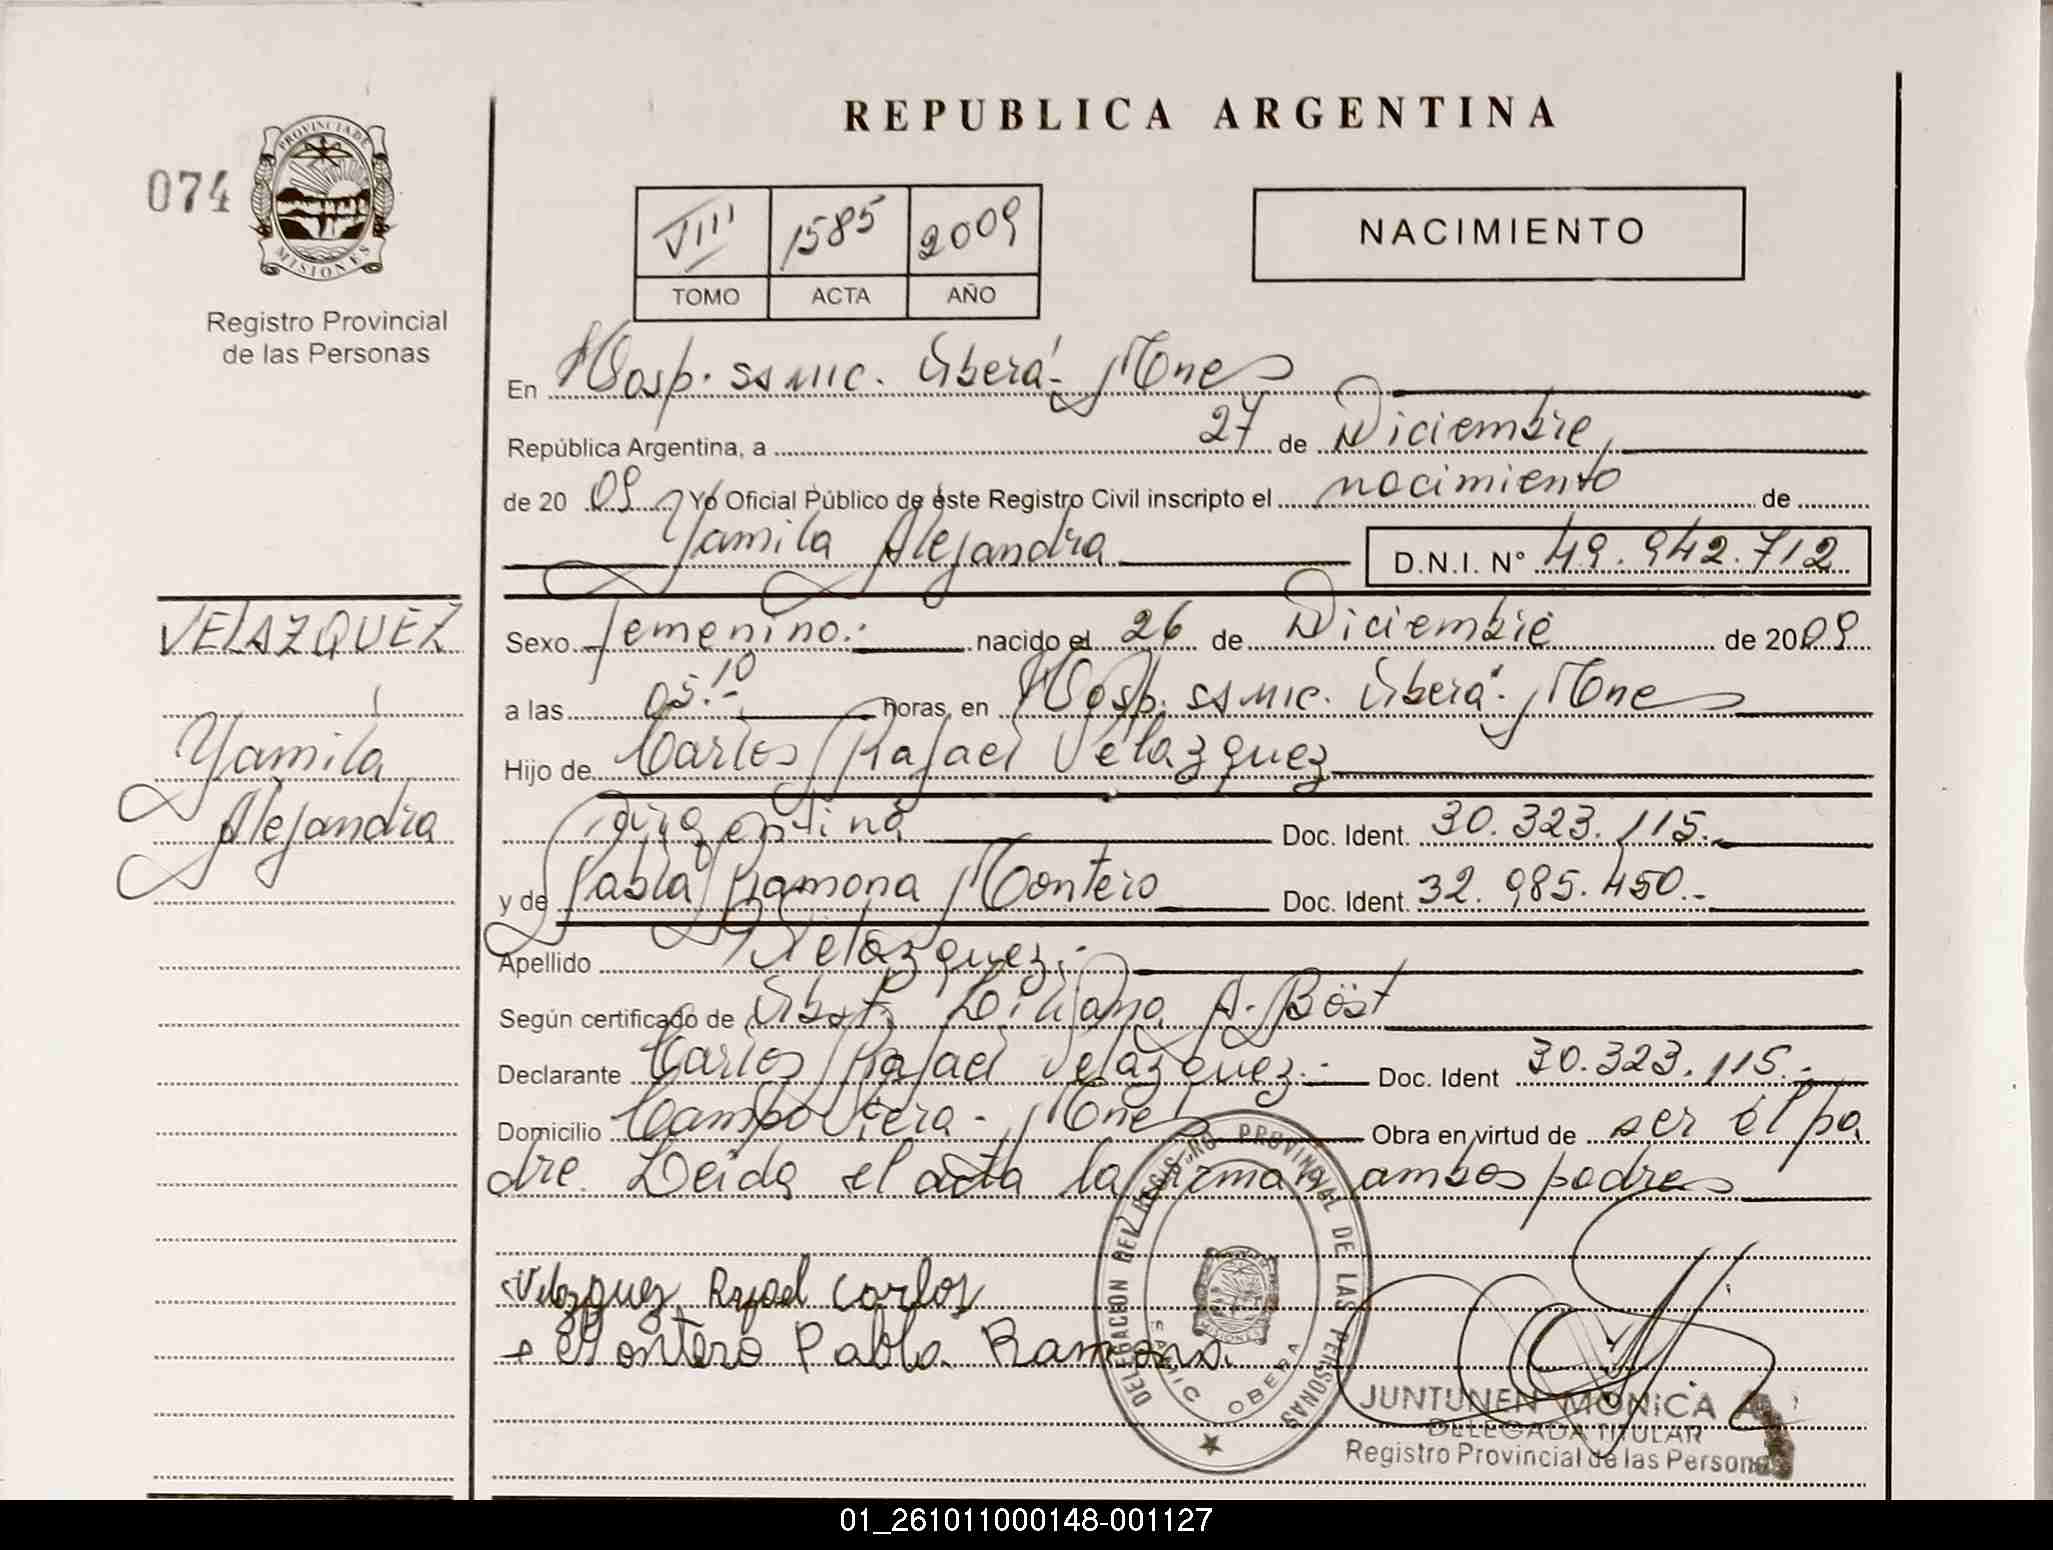 REPUBLICA ARGENTINA
074
PROVINCIA DE
MISIONES
Registro Provincial
de las Personas
VIII 1585 2009
TOMO ACTA AÑO
NACIMIENTO
En Hosp. SAMIC. Oberá - Mnes
República Argentina, a 27 de Diciembre
de 20 09 Yo Oficial Público de este Registro Civil inscripto el nacimiento de
Yamila Alejandra D.N.I. N° 49.942.712
VELAZQUEZ
Yamila
Alejandra
Sexo femenino.- nacido el 26 de Diciembre de 2009
a las 05.10 horas, en Hosp. SAMIC. Oberá - Mnes
Hijo de Carlos Rafael Velazquez
Argentina Doc. Ident. 30.323.115.-
y de Pabla Ramona Montero Doc. Ident. 32.985.450.-
Apellido Velazquez.-
Según certificado de Obst. Liliana A. Böst
Declarante Carlos Rafael Velazquez.- Doc. Ident 30.323.115.-
Domicilio Campo Viera - Mnes Obra en virtud de ser el pa
dre. Leida el acta la firman ambos padres
Velazquez Rafael Carlos
Montero Pabla Ramona.
DELEGACION DEL REGISTRO PROVINCIAL DE LAS PERSONAS
MISIONES
SAMIC OBERA
JUNTUNEN MONICA A
DELEGADA TITULAR
Registro Provincial de las Personas
01_261011000148-001127